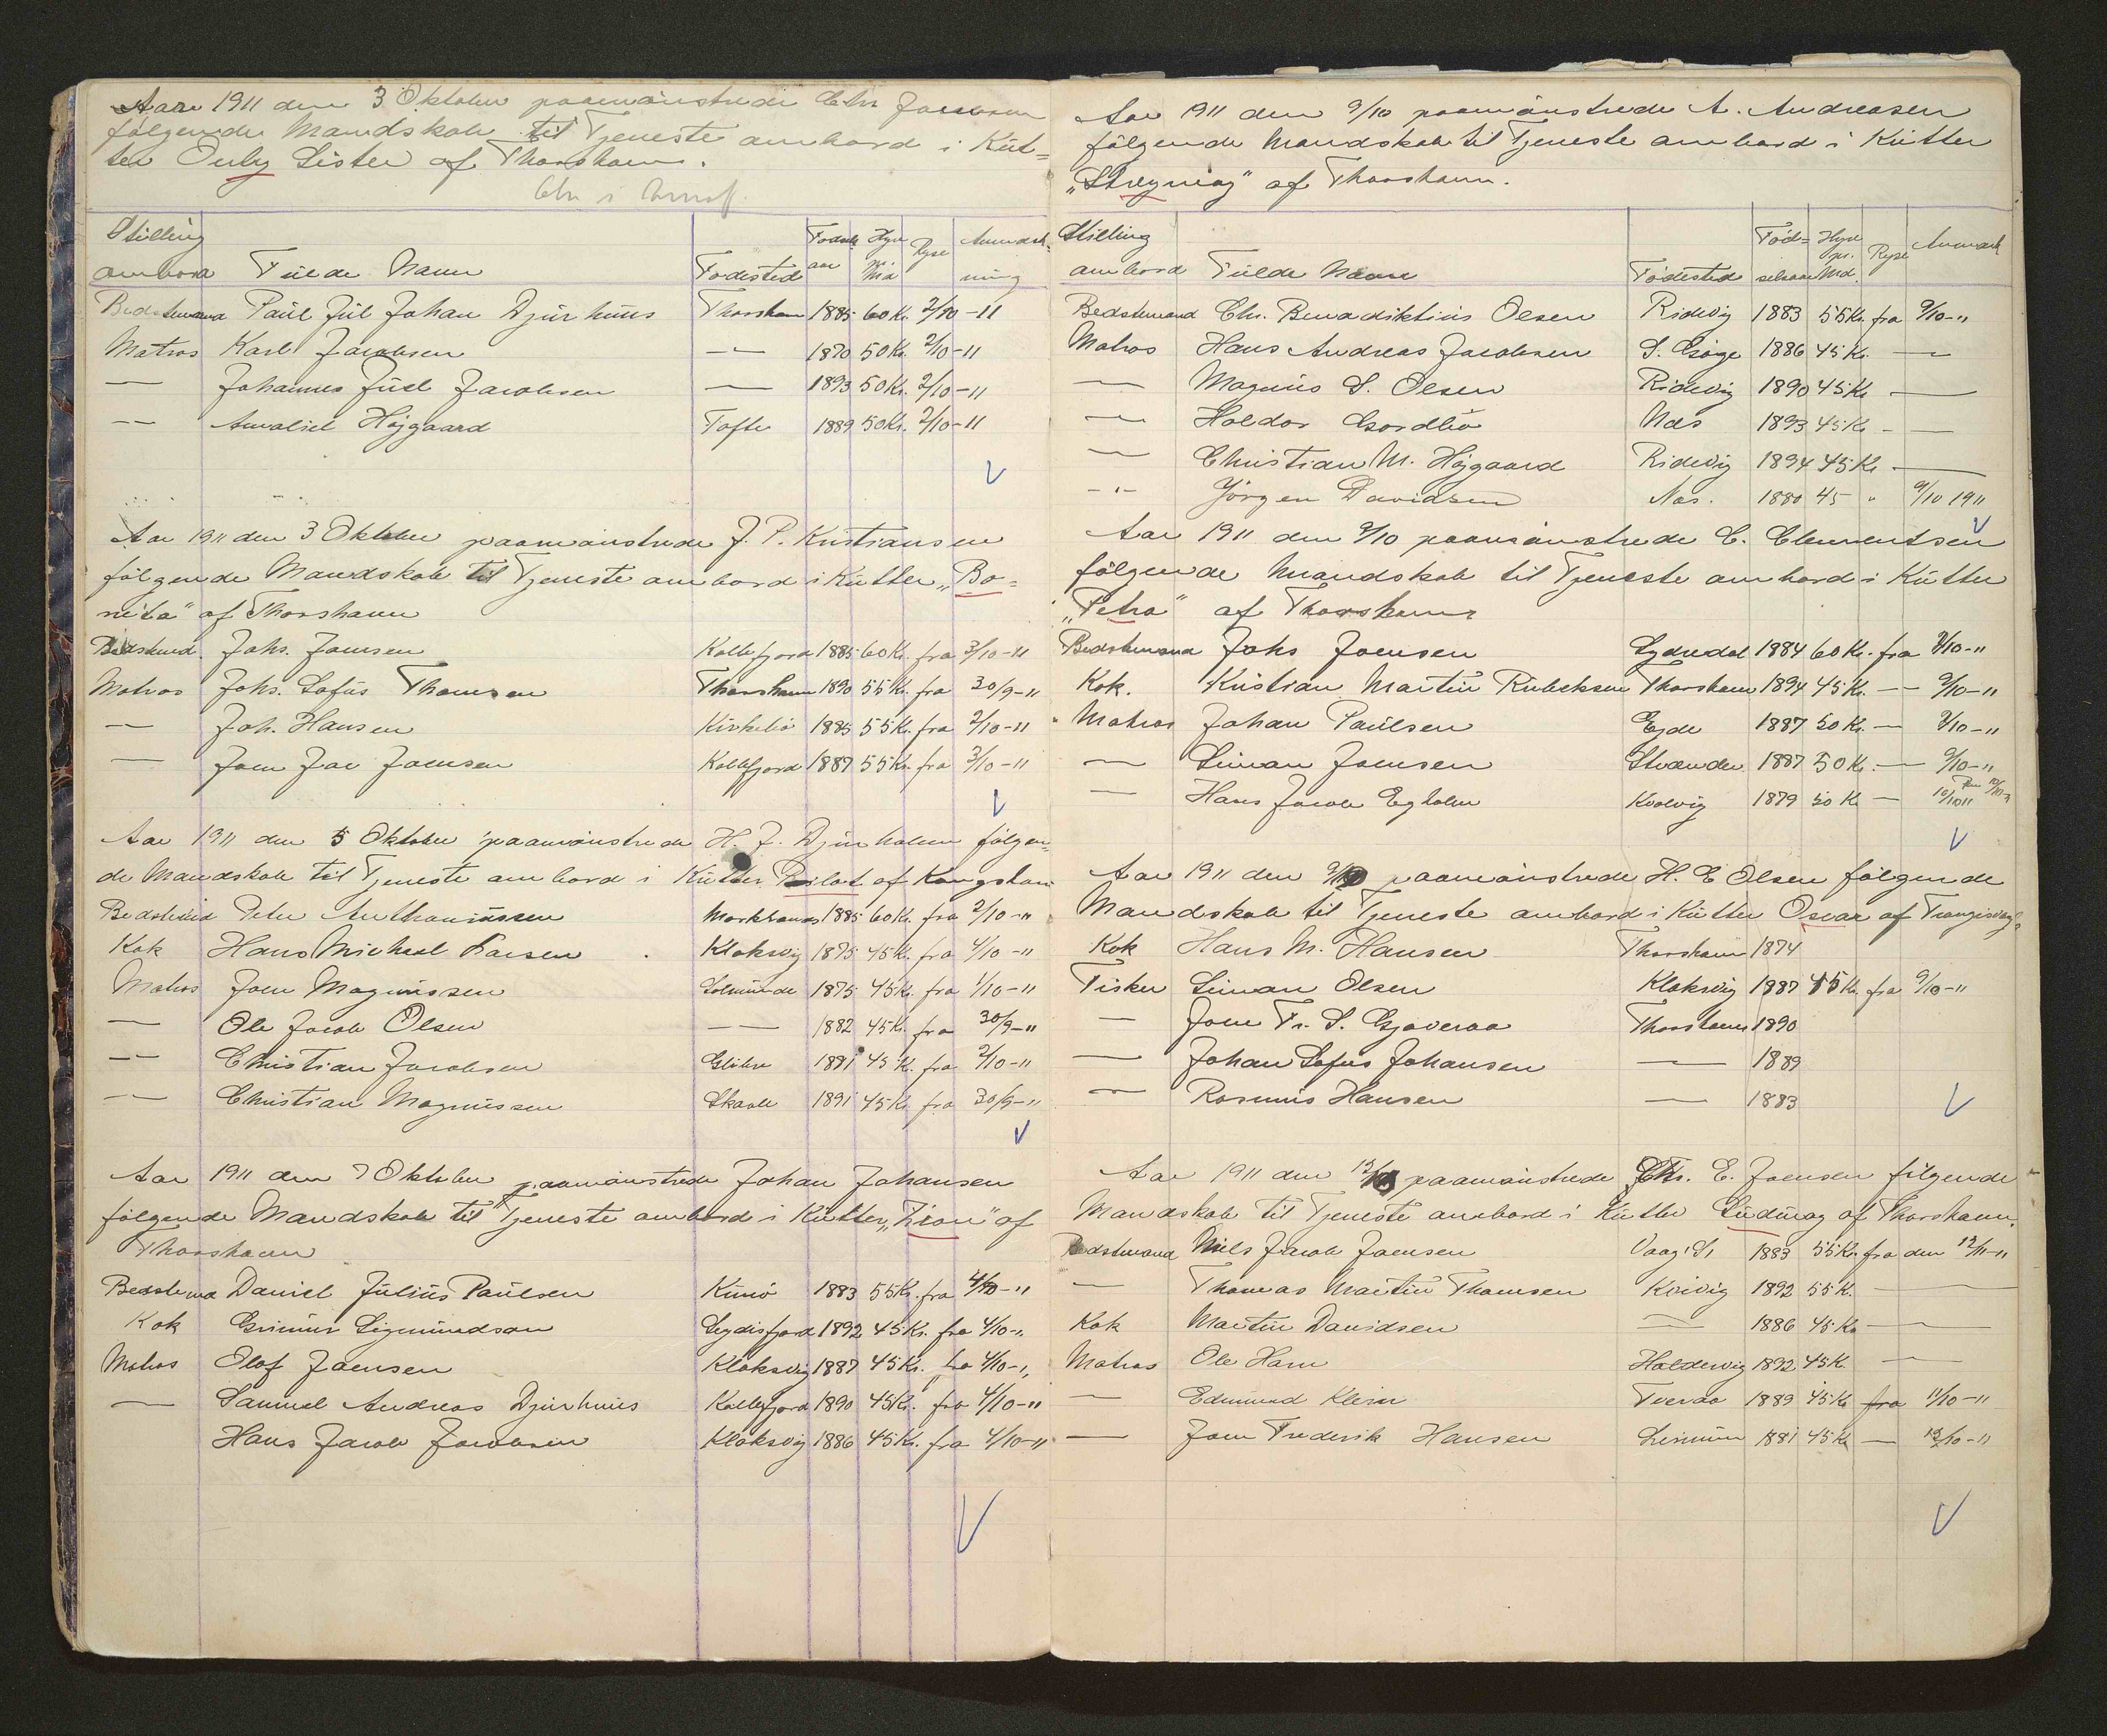 Aar 1911 den 3 Oktober paamönstrede Chr Jacobsen
følgende Mandskab til Tjeneste ombord i Kut=
ter Only Sister af Thorshavn.
Chr i
Stilling ombord Fulde Navn Fødested Fødsels aar Hyre pr. Md Rejse Anmærk=ning
Bedstemand Paul Jul Johan Djurhuus Thorshavn 1885 60 Kr. 2/10-11
Matros Karl Jacobsen —"— 1870 50 Kr. 2/10-11
—"— Johannes Juel Jacobsen —"— 1893 50 Kr. 2/10-11
—"— Højgaard Tofte 1889 50 Kr. 2/10-11
Aar 1911 den 3 Oktober paamönstrede J. P. Kristiansen
følgende Mandskab til Tjeneste ombord i Kutter „Bo=
nita" af Thorshavn
Bedstemd. Johs. Joensen Kollefjord 1885 60 Kr. fra 3/10-11
Matros Johs. Sofus Thomsen Thorshavn 1890 55 Kr. fra 30/9-11
— Joh. Hansen Kirkebö 1885 55 Kr. fra 2/10-11
— Joen Jac Joensen Kollefjord 1887 55 Kr. fra 3/10-11
Aar 1911 den 5 Oktober paamönstrede H. J. Djurholm følgen=
de Mandskab til Tjeneste ombord i Kutter Pilot af Kongshavn
Bedstemd Peter Anthoniussen 1885 60 Kr. fra 2/10-11
Kok Hans Micheal Klaksvig 1875 45 Kr. fra 4/10-11
Matros Joen Magnussen Solmunde 1875 45 Kr. fra 1/10-11
— Ole Jacob Olsen —"— 1882 45 Kr. fra 30/9-11
—"— Christian Jacobsen Glibre 1881 45 Kr. fra 2/10-11
—"— Christian Magnussen Skaale 1891 45 Kr. fra 30/9-11
Aar 1911 den 7 Oktober paamönstrede Johan Johansen
følgende Mandskab til Tjeneste ombord i Kutter „Zion" af
Thorshavn
Bedstema Daniel Julius Paulsen Kunö 1883 55 Kr. fra 4/10-11
Kok Grimur Sigmundson Seydisfjord 1892 45 Kr. fra 4/10-11
Matros Olaf Joensen Klaksvig 1887 45 Kr. fra 4/10-11
— Samuel Andreas Djurhuus Kollefjord 1890 45 Kr. fra 4/10-11
Hans Jacob Jacobsen Klaksvig 1886 45 Kr. fra 4/10-11
Aar 1911 den 9/10 paamönstrede A. Andreasen
følgende Mandskab til Tjeneste ombord i Kutter
„Streymoy" af Thorshavn.
Stilling ombord Fulde Navn Fødested Fød=selsaar Hyre pr. Md. Rejse Anmærk
Bedstemand Chr. Benadiktius Olsen Ridevig 1883 55 Kr. fra 9/10-11
Matros Hans Andreas Jacobsen S. Gjöge 1886 45 Kr. —"—
— Magnus S. Olsen Ridevig 1890 45 Kr —
— Haldor Gsordbö Nds 1893 45 Kr - —
— Christian M. Højgaard Ridevig 1894 45 Kr —
-"- Jörgen Davidsen Nds. 1880 45 " 9/10 1911
Aar 1911 den 9/10 paamönstrede C. Clementsen
følgende Mandskab til Tjeneste ombord i Kutter
„Petra" af Thorshavn
Bedstemand Johs Joensen Sydredal 1884 60 Kr. fra 9/10-11
Kok. Kristian Martin Rubeksen Thorshavn 1894 45 Kr. — 9/10-11
Matros Johan Paulsen Ejde 1887 50 Kr. — 9/10-11
— Simon Joensen Strænder 1887 50 Kr. — 9/10-11
— Hans Jacob Egholm Kvalvig 1879 50 Kr — 10/10 11
Aar 1911 den 9/10 paamönstrede H. E Olsen følgende
Mandskab til Tjeneste ombord i Kutter Oscar af Trangisvaag.
Kok Hans M. Hansen Thorshavn 1874
Fisker Simon Olsen Klaksvig 1887 45 Kr. fra 9/10-11
— Joen Fr. S. Gjoveraa Thorshavn 1890
— Johan Sofus Johansen — 1889
— Rasmus Hansen — 1883
Aar 1911 den 12/10 paamönstrede Chr. E. Joensen følgende
Mandskab til Tjeneste ombord i Kutter Suduroy af Thorshavn.
Bedstemand Niels Jacob Joensen Vaag S. 1883 55 Kr. fra den 12/10-11
— Thomas Martin Thomsen Kvivig 1892 55 K. — —
Kok Martin Davidsen — 1886 45 Kr — —
Matros Ole Ham Haldervig 1892 45 K. —
— Edmund Klein Tveraa 1889 45 Kr fra 11/10-11
— Joen Frederik Hansen 1881 45 Kr — 12/10-11